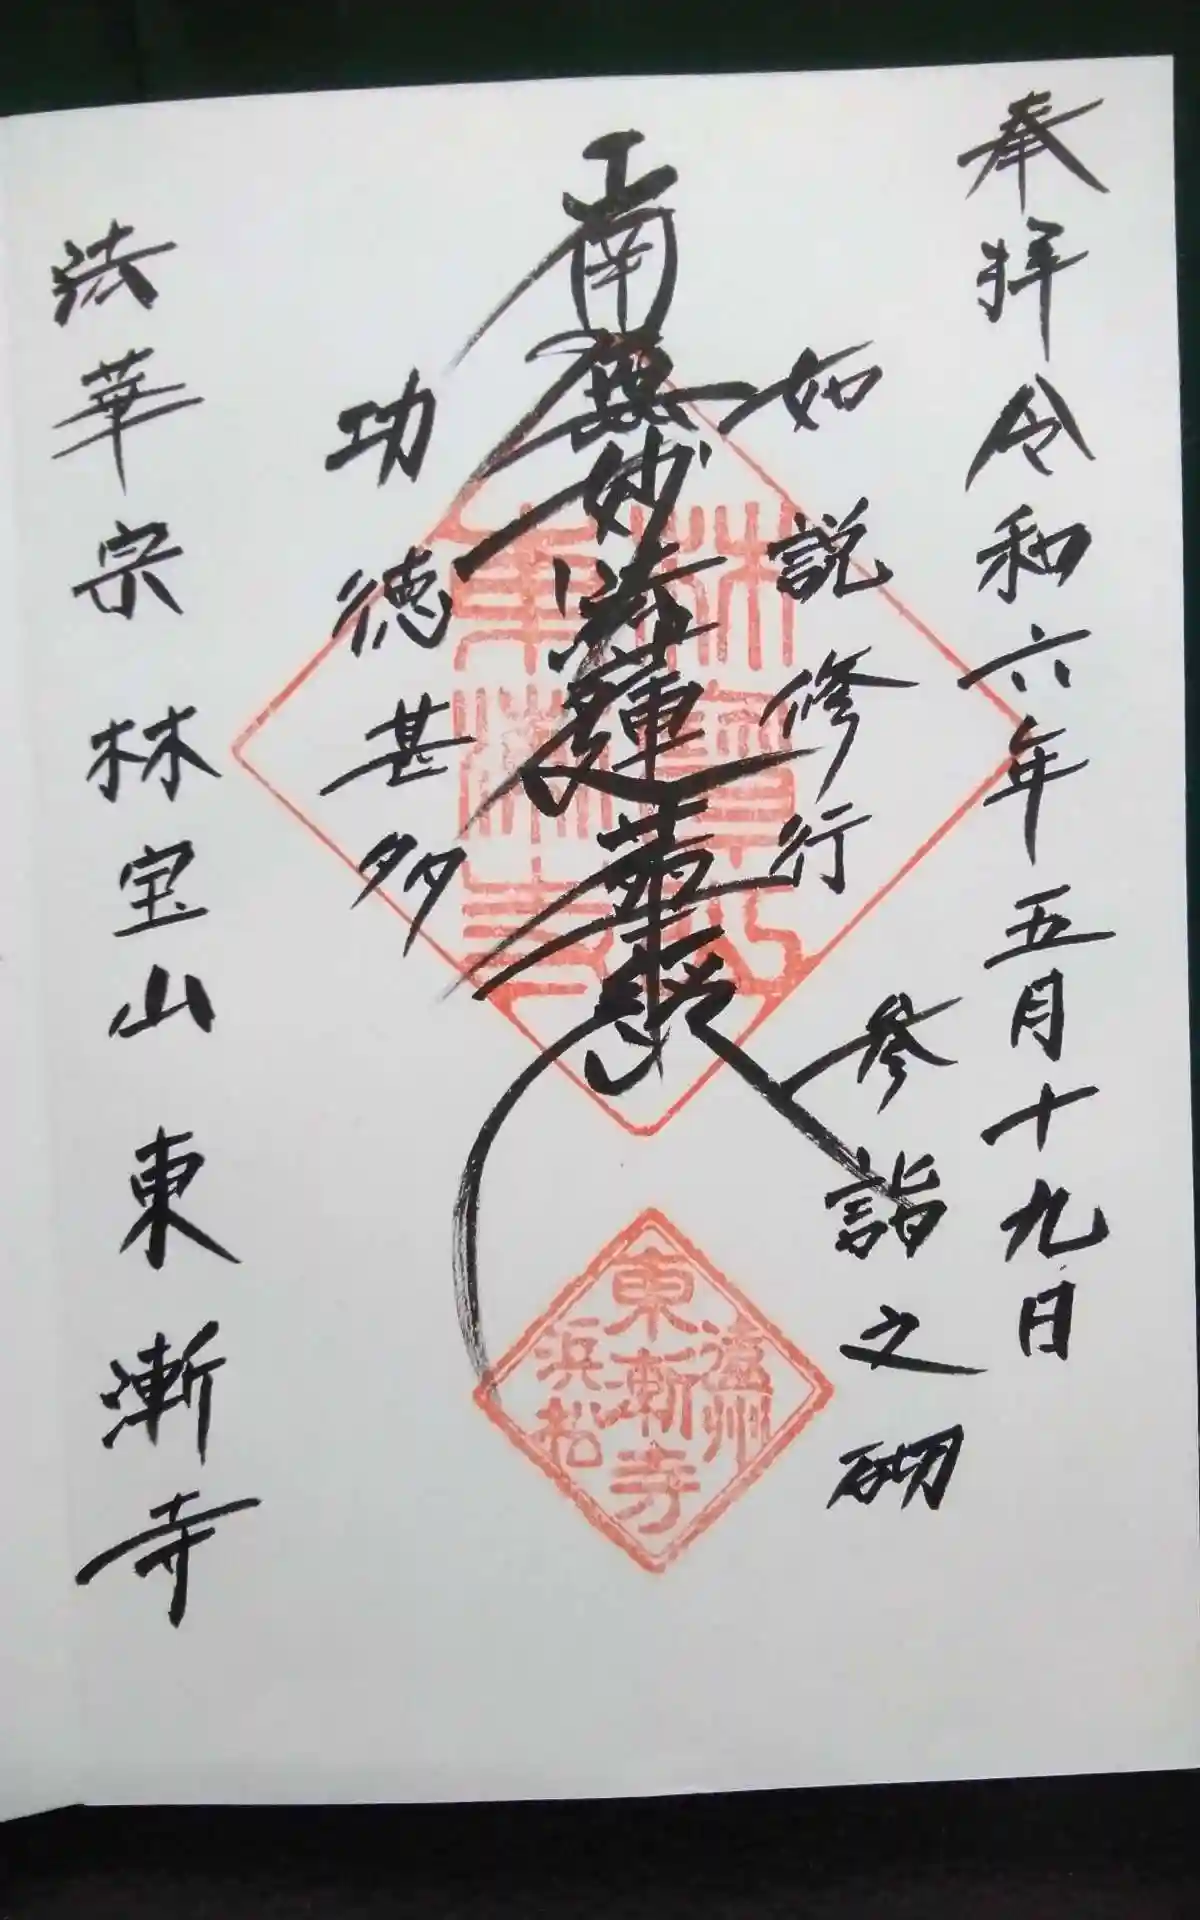 奉拝 令和六年五月十九日
参詣之砌
如説修行
南無妙法蓮華経
功徳甚多
法華宗 林宝山 東漸寺
林寶山
東漸寺
遠州
東漸寺
浜松